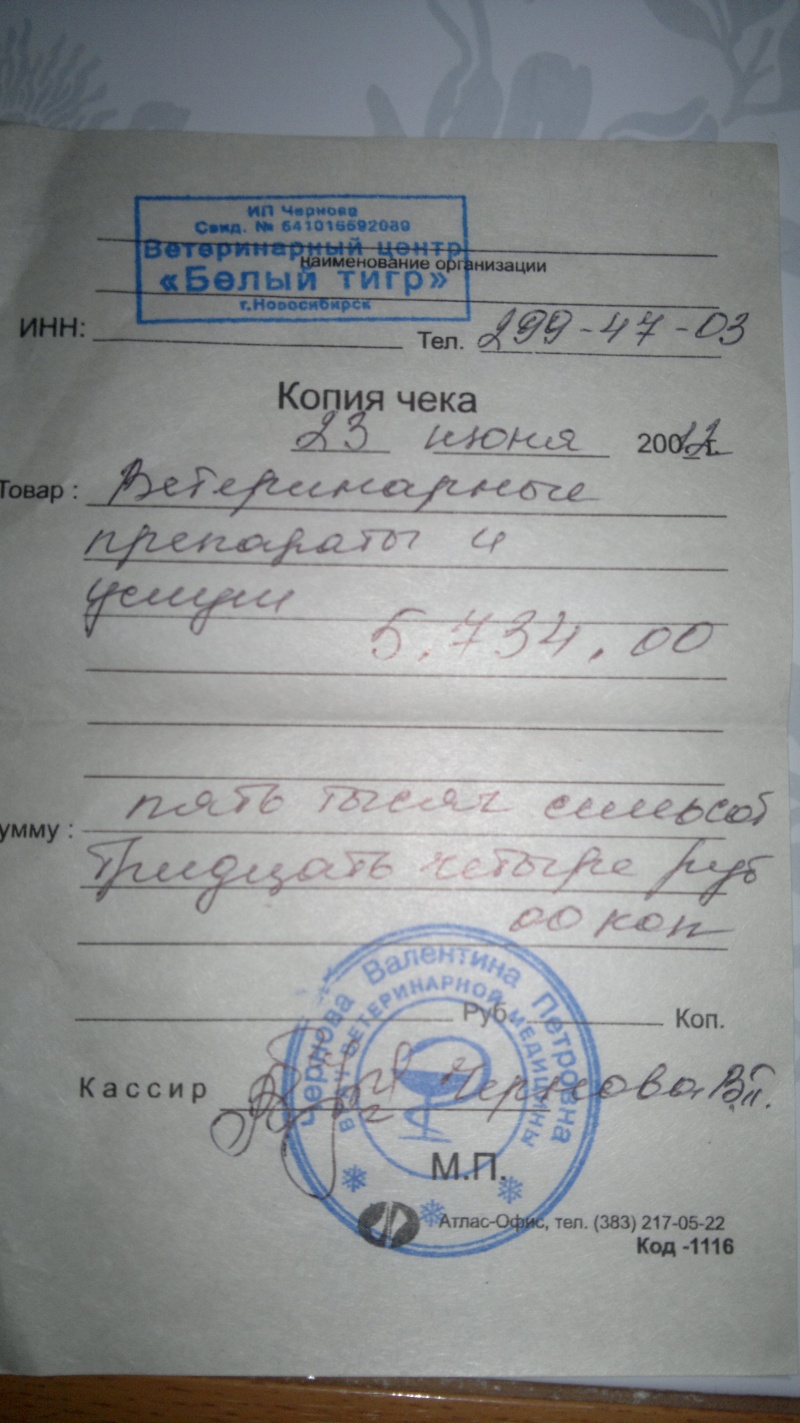 ИП Чернова
Свид. № 641016592089
Ветеринарный центр
наименование организации
«Белый тигр»
г.Новосибирск
ИНН: Тел. 299-47-03
Копия чека
23 июня 20012г.
Товар : Ветеринарные
препараты и
услуги
5.734.00
умму : пять тысяч семьсот
тридцать четыре руб
00 коп
Руб. Коп.
Кассир Чернова В.П.
Чернова Валентина Петровна
ВРАЧ ВЕТЕРИНАРНОЙ МЕДИЦИНЫ
М.П.
Атлас-Офис, тел. (383) 217-05-22
Код -1116